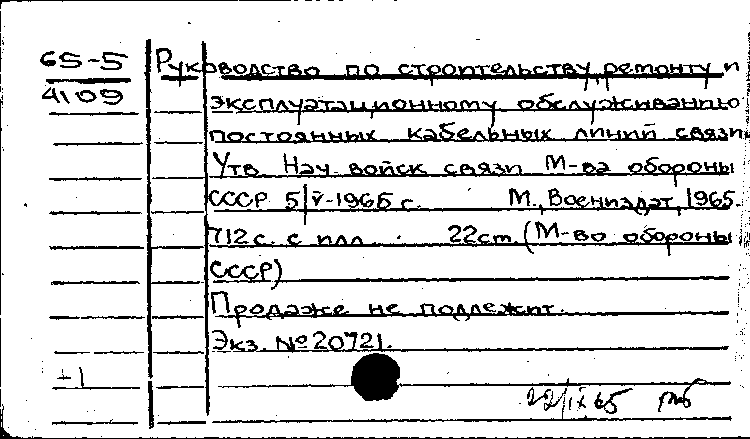 65-5
4109
Руководство по строительству, ремонту и
эксплуатационному обслуживанию
постоянных кабельных линий связи
Утв. Нач. войск связи М-ва обороны
СССР 5/V-1965 г. М., Воениздат, 1965.
712 с. с илл. 22 см. (М-во обороны
СССР)
Продаже не подлежит.
Экз. № 20721.
+1
22/IX 65